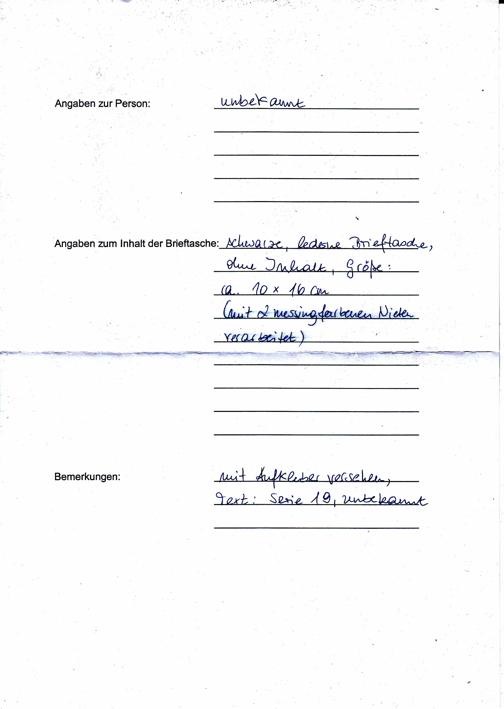 Angaben zur Person: unbekannt
Angaben zum Inhalt der Brieftasche: schwarze, lederne Brieftasche,
ohne Inhalt, Größe:
ca. 10 x 16 cm
(mit 2 messingfarbenen Nieten
verarbeitet)
Bemerkungen: mit Aufkleber versehen,
Text: Serie 19, unbekannt